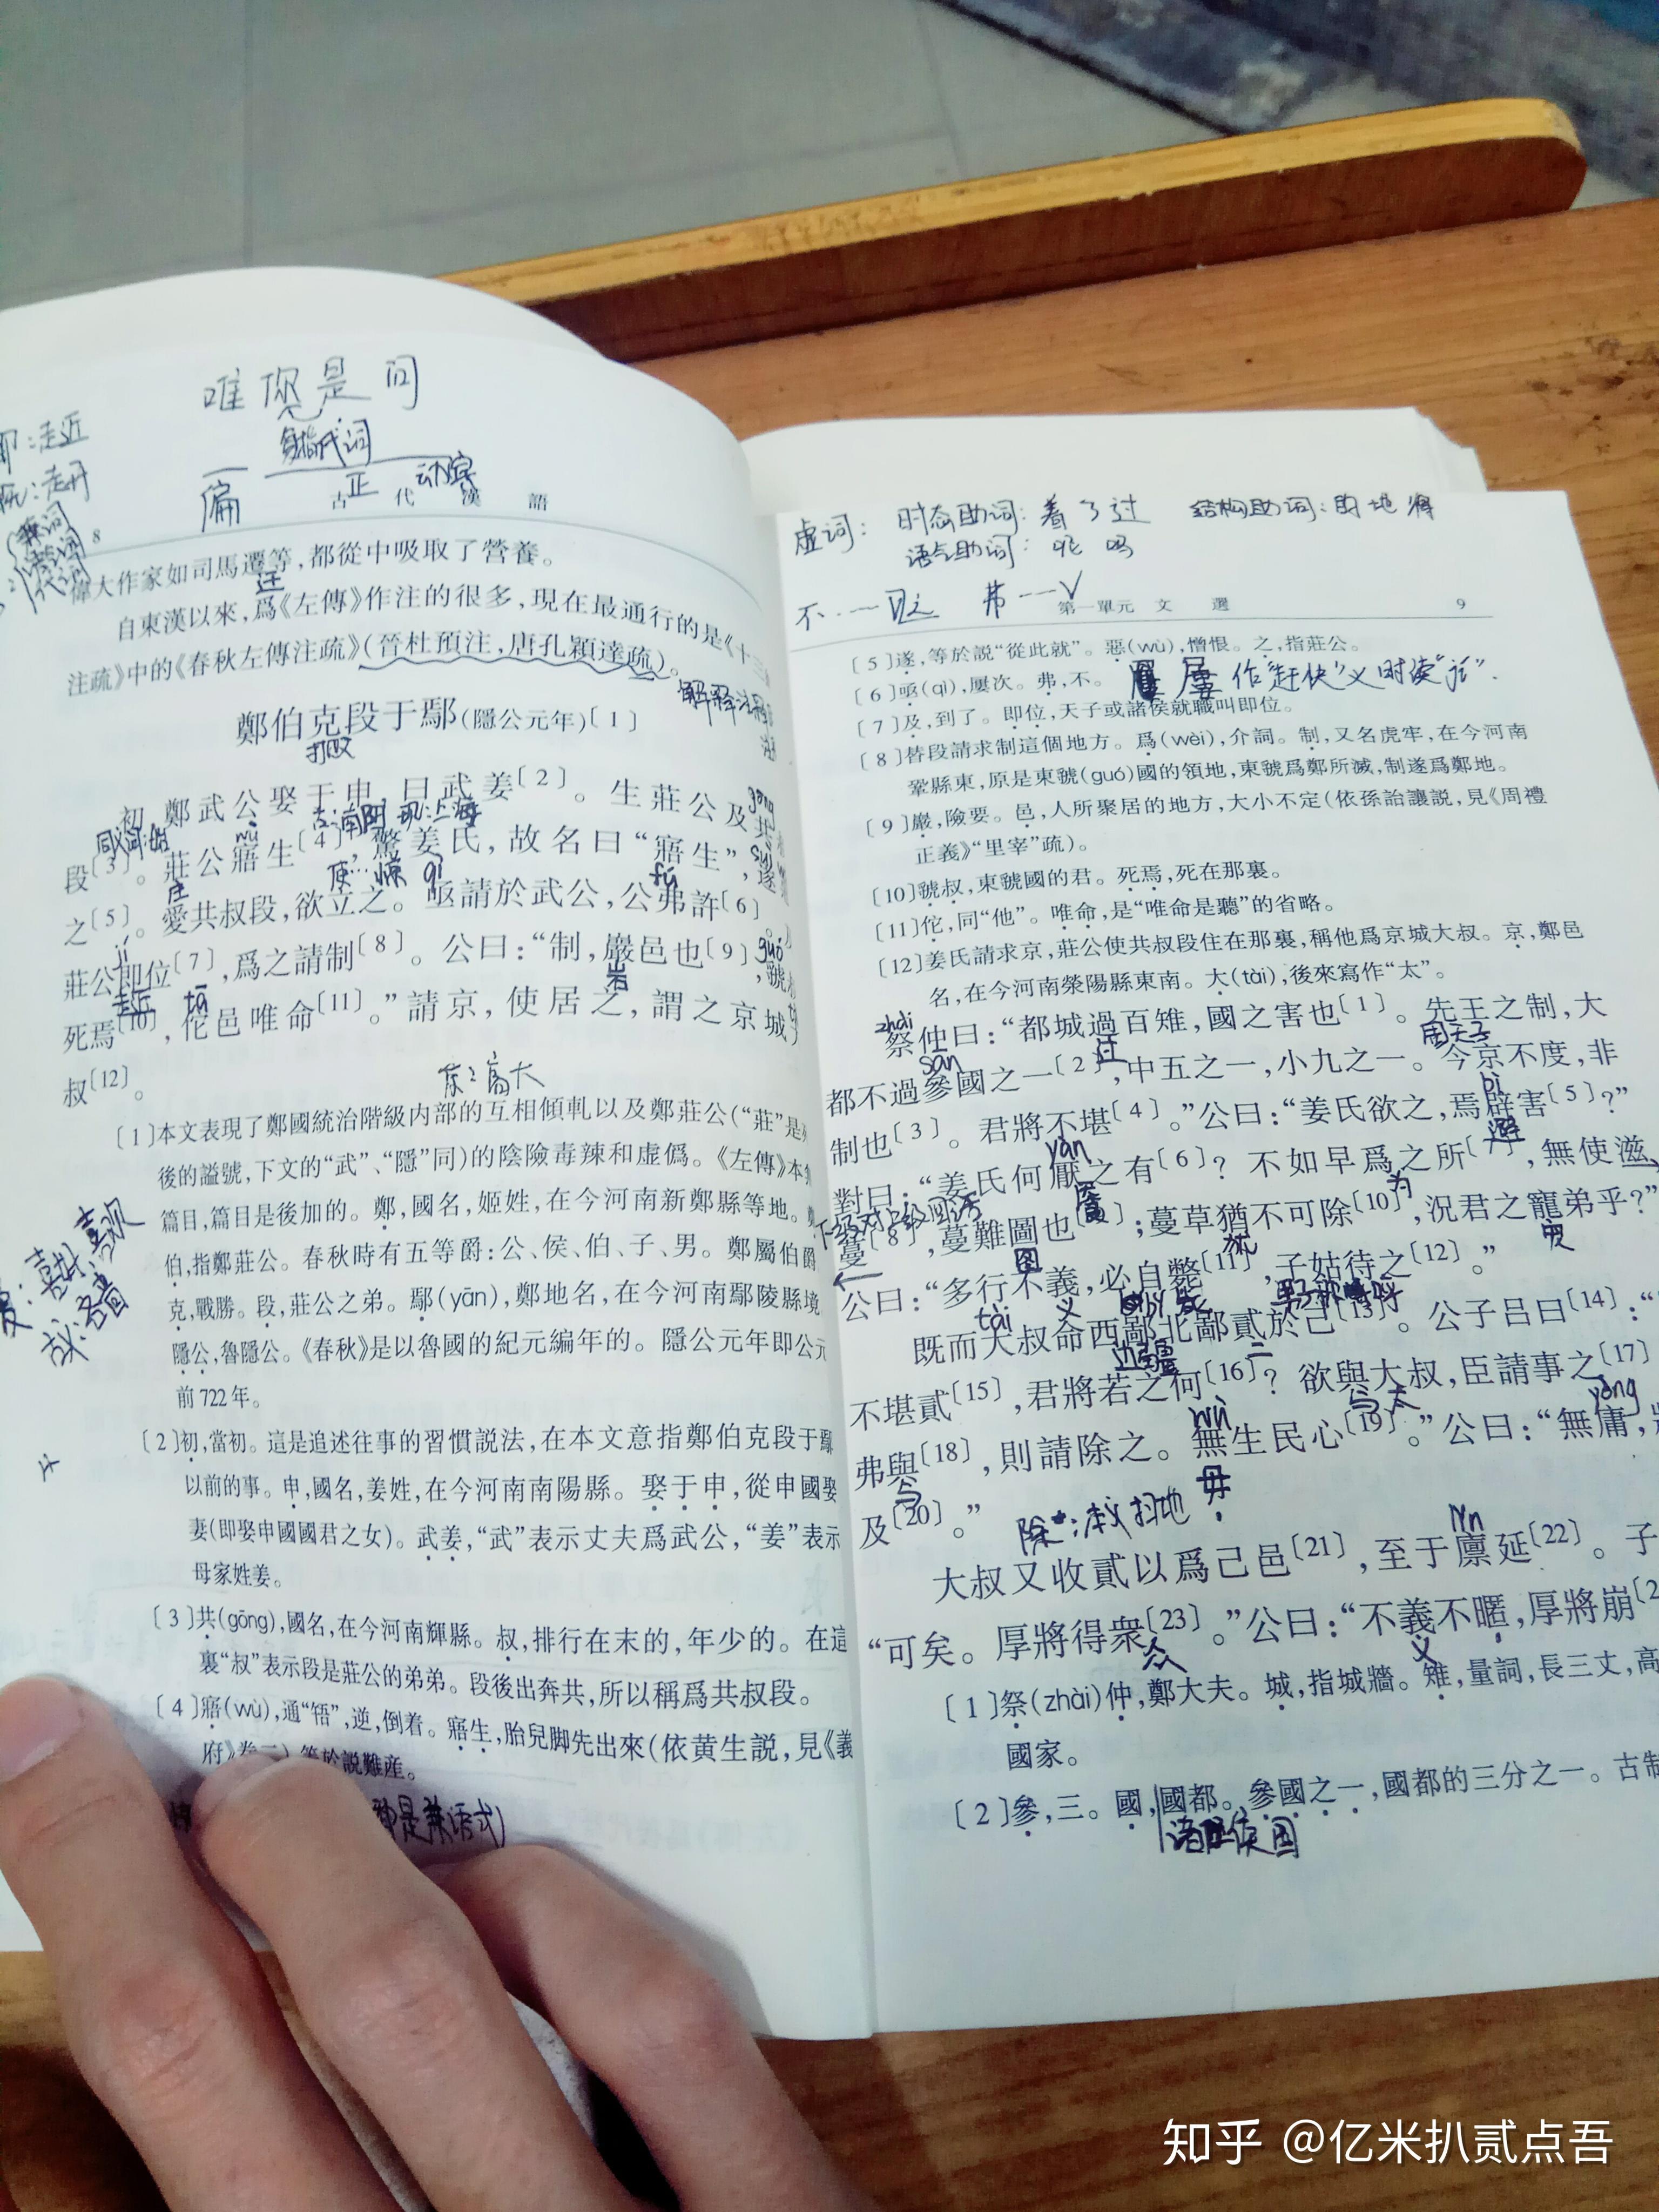 唯你是问
复指代词
偏 正 动宾
古代漢語
8
偉大作家如司馬遷等,都從中吸取了營養。
迁
自東漢以來,爲《左傳》作注的很多,現在最通行的是《十三
注疏》中的《春秋左傳注疏》(晉杜預注,唐孔穎達疏)。
鄭伯克段于鄢(隱公元年)〔1〕
打败
初,鄭武公娶于申,曰武姜〔2〕。生莊公及共
段〔3〕。莊公寤生〔4〕,驚姜氏,故名曰“寤生”,遂
之〔5〕。愛共叔段,欲立之。亟請於武公,公弗許〔6〕。
莊公即位〔7〕,爲之請制〔8〕。公曰:“制,巖邑也〔9〕,虢
走近 tā 岩
死焉〔10〕,佗邑唯命〔11〕。”請京,使居之,謂之京城
叔〔12〕。
京:高大
〔1〕本文表現了鄭國統治階級内部的互相傾軋以及鄭莊公(“莊”是
後的謚號,下文的“武”、“隱”同)的陰險毒辣和虚僞。《左傳》本
篇目,篇目是後加的。鄭,國名,姬姓,在今河南新鄭縣等地。
伯,指鄭莊公。春秋時有五等爵:公、侯、伯、子、男。鄭屬伯爵
克,戰勝。段,莊公之弟。鄢(yān),鄭地名,在今河南鄢陵縣境
隱公,魯隱公。《春秋》是以魯國的紀元編年的。隱公元年即公元
前722年。
〔2〕初,當初。這是追述往事的習慣説法,在本文意指鄭伯克段于鄢
以前的事。申,國名,姜姓,在今河南南陽縣。娶于申,從申國娶
妻(即娶申國國君之女)。武姜,“武”表示丈夫爲武公,“姜”表示
母家姓姜。
〔3〕共(gōng),國名,在今河南輝縣。叔,排行在末的,年少的。在這
裏“叔”表示段是莊公的弟弟。段後出奔共,所以稱爲共叔段。
〔4〕寤(wù),通“牾”,逆,倒着。寤生,胎兒脚先出來(依黄生説,見《義
府》卷二),等於説難産。
是兼语式)
虚词: 时态助词:着了过 结构助词:的地得
语气助词:呢 吗
第一單元 文 選
9
〔5〕遂,等於説“從此就”。惡(wù),憎恨。之,指莊公。
〔6〕亟(qì),屢次。弗,不。
屡 作“赶快”义时读“jí”.
〔7〕及,到了。即位,天子或諸侯就職叫即位。
〔8〕替段請求制這個地方。爲(wèi),介詞。制,又名虎牢,在今河南
鞏縣東,原是東虢(guó)國的領地,東虢爲鄭所滅,制遂爲鄭地。
〔9〕巖,險要。邑,人所聚居的地方,大小不定(依孫詒讓説,見《周禮
正義》“里宰”疏)。
〔10〕虢叔,東虢國的君。死焉,死在那裏。
〔11〕佗,同“他”。唯命,是“唯命是聽”的省略。
〔12〕姜氏請求京,莊公使共叔段住在那裏,稱他爲京城大叔。京,鄭邑
名,在今河南滎陽縣東南。大(tài),後來寫作“太”。
zhài
祭仲曰:“都城過百雉,國之害也〔1〕。先王之制,大
sān 过 周天子
都不過參國之一〔2〕,中五之一,小九之一。今京不度,非
bì
制也〔3〕。君將不堪〔4〕。”公曰:“姜氏欲之,焉辟害〔5〕?”
yàn 避
對曰:“姜氏何厭之有〔6〕?不如早爲之所〔7〕,無使滋
下级对上级回答 为
蔓〔8〕,蔓難圖也〔9〕;蔓草猶不可除〔10〕,況君之寵弟乎?”
图 犹 宠
公曰:“多行不義,必自斃〔11〕,子姑待之〔12〕。”
tài 义
既而大叔命西鄙北鄙貳於己〔13〕。公子吕曰〔14〕:“
边疆 二
不堪貳〔15〕,君將若之何〔16〕?欲與大叔,臣請事之〔17〕
wù 与 太 yōng
弗與〔18〕,則請除之。無生民心〔19〕。”公曰:“無庸,將
与 毋
及〔20〕。”
大叔又收貳以爲己邑〔21〕,至于廪延〔22〕。子
“可矣。厚將得衆〔23〕。”公曰:“不義不暱,厚將崩〔2
众 义
〔1〕祭(zhài)仲,鄭大夫。城,指城牆。雉,量詞,長三丈,高
國家。
〔2〕參,三。國,國都。參國之一,國都的三分之一。古制
诸侯国
知乎 @亿米扒贰点吾